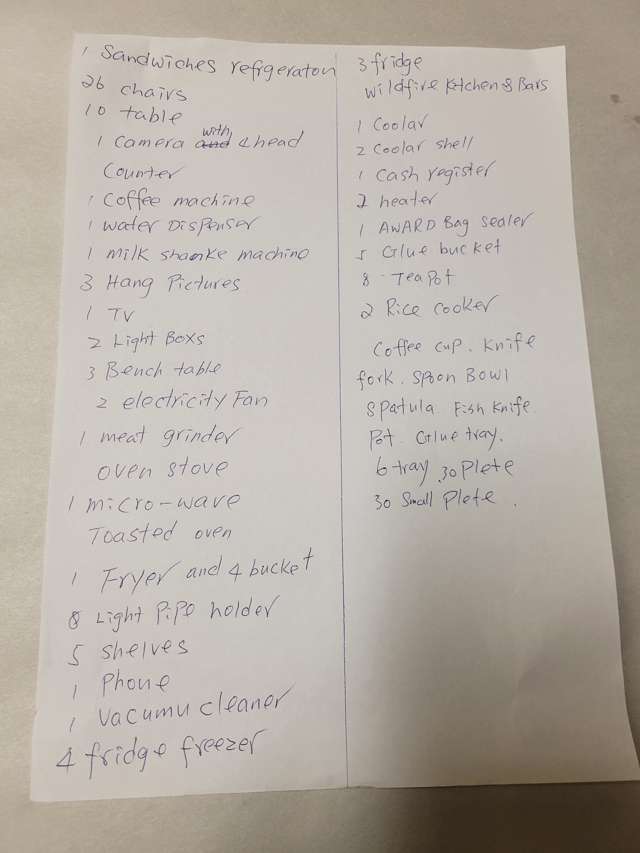 1 Sandwiches refrgeraton
26 chairs
10 table
1 camera with 4 head
Counter
1 Coffee machine
1 water Dispenser
1 milk shamke machine
3 Hang Pictures
1 TV
2 Light Boxs
3 Bench table
2 electricity Fan
1 meat grinder
oven stove
1 micro-wave
Toasted oven
1 Fryer and 4 bucket
8 Light Pipe holder
5 shelves
1 Phone
1 Vacumu cleaner
4 fridge freezer
3 fridge
Wildfire Kitchen & Bars
1 Coolar
2 Coolar shell
1 Cash register
2 heater
1 AWARD Bag Sealer
5 Glue bucket
8 Tea Pot
2 Rice cooker
Coffee cup. Knife
fork. Spoon Bowl
Spatula Fish Knife.
Pot. Glue tray.
6 tray. 30 Plete
30 Small Plete.